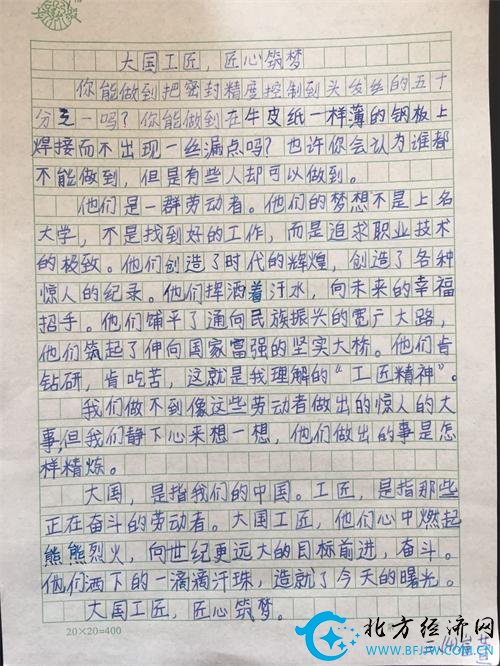 大国工匠，匠心筑梦
你能做到把密封精度控制到头发丝的五十
分之一吗？你能做到在牛皮纸一样薄的钢板上
焊接而不出现一丝漏点吗？也许你会认为谁都
不能做到，但是有些人却可以做到。
他们是一群劳动者。他们的梦想不是上名
大学，不是找到好的工作，而是追求职业技术
的极致。他们创造了时代的辉煌，创造了各种
惊人的纪录。他们挥洒着汗水，向未来的幸福
招手。他们铺平了通向民族振兴的宽广大路，
他们筑起了伸向国家富强的坚实大桥。他们肯
钻研，肯吃苦，这就是我理解的“工匠精神”。
我们做不到像这些劳动者做出的惊人的大
事，但我们静下心来想一想，他们做出的事是怎
样精炼。
大国，是指我们的中国。工匠，是指那些
正在奋斗的劳动者。大国工匠，他们心中燃起
熊熊烈火，向世纪更远大的目标前进，奋斗。
他们洒下的一滴滴汗珠，造就了今天的曙光。
大国工匠，匠心筑梦。
20×20=400
北方经济网
WWW.BFJJW.COM.CN